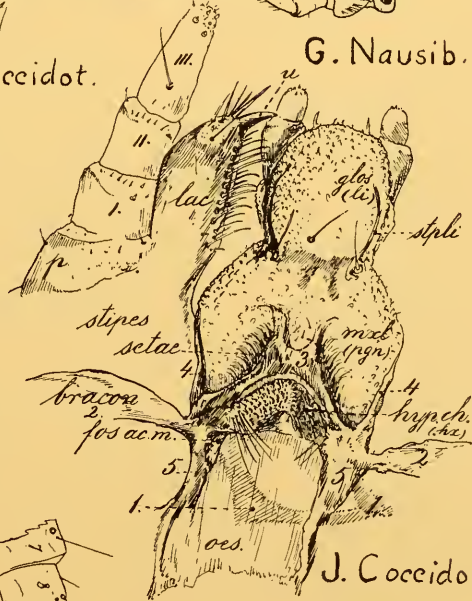 G. Nausib.
ccidot.
III.
II.
I.
p
u
lac
glos
(li)
stpli
stipes
setae
4
3
mxl
(pgn)
4
bracon
2.
fos ac. m.
hyp. ch.
(hx)
2
5
5
1.
1.
oes.
J. Coccido